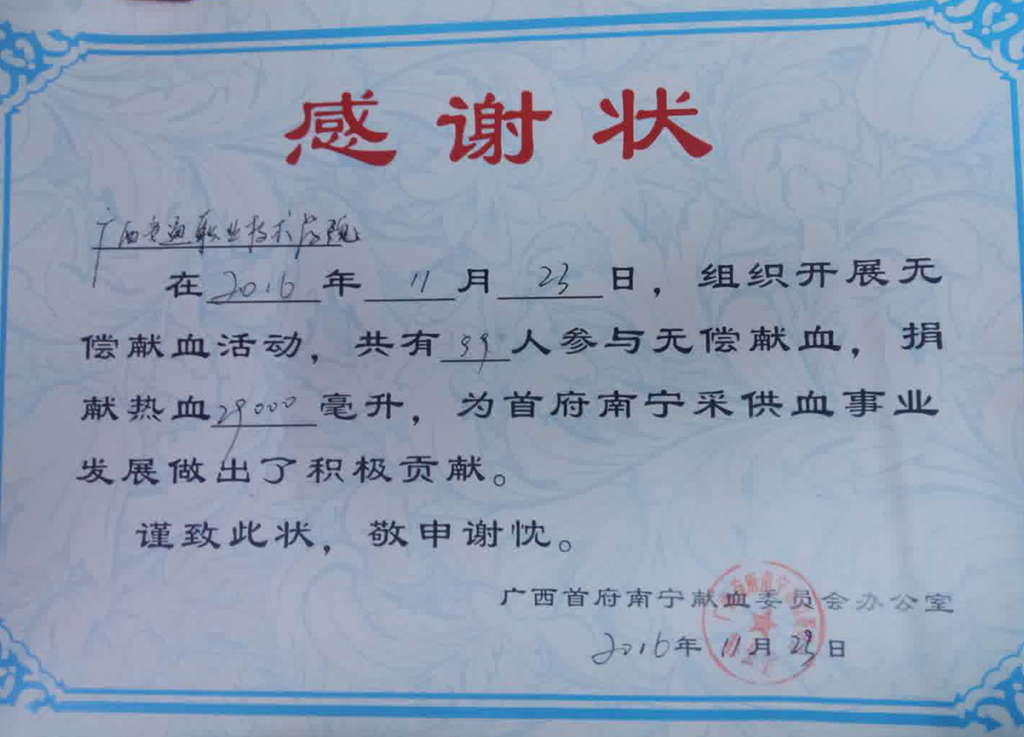 感谢状
广西交通职业技术学院
在2016年11月23日，组织开展无
偿献血活动，共有99人参与无偿献血，捐
献热血29000毫升，为首府南宁采供血事业
发展做出了积极贡献。
谨致此状，敬申谢忱。
广西首府南宁献血委员会办公室
2016年11月23日